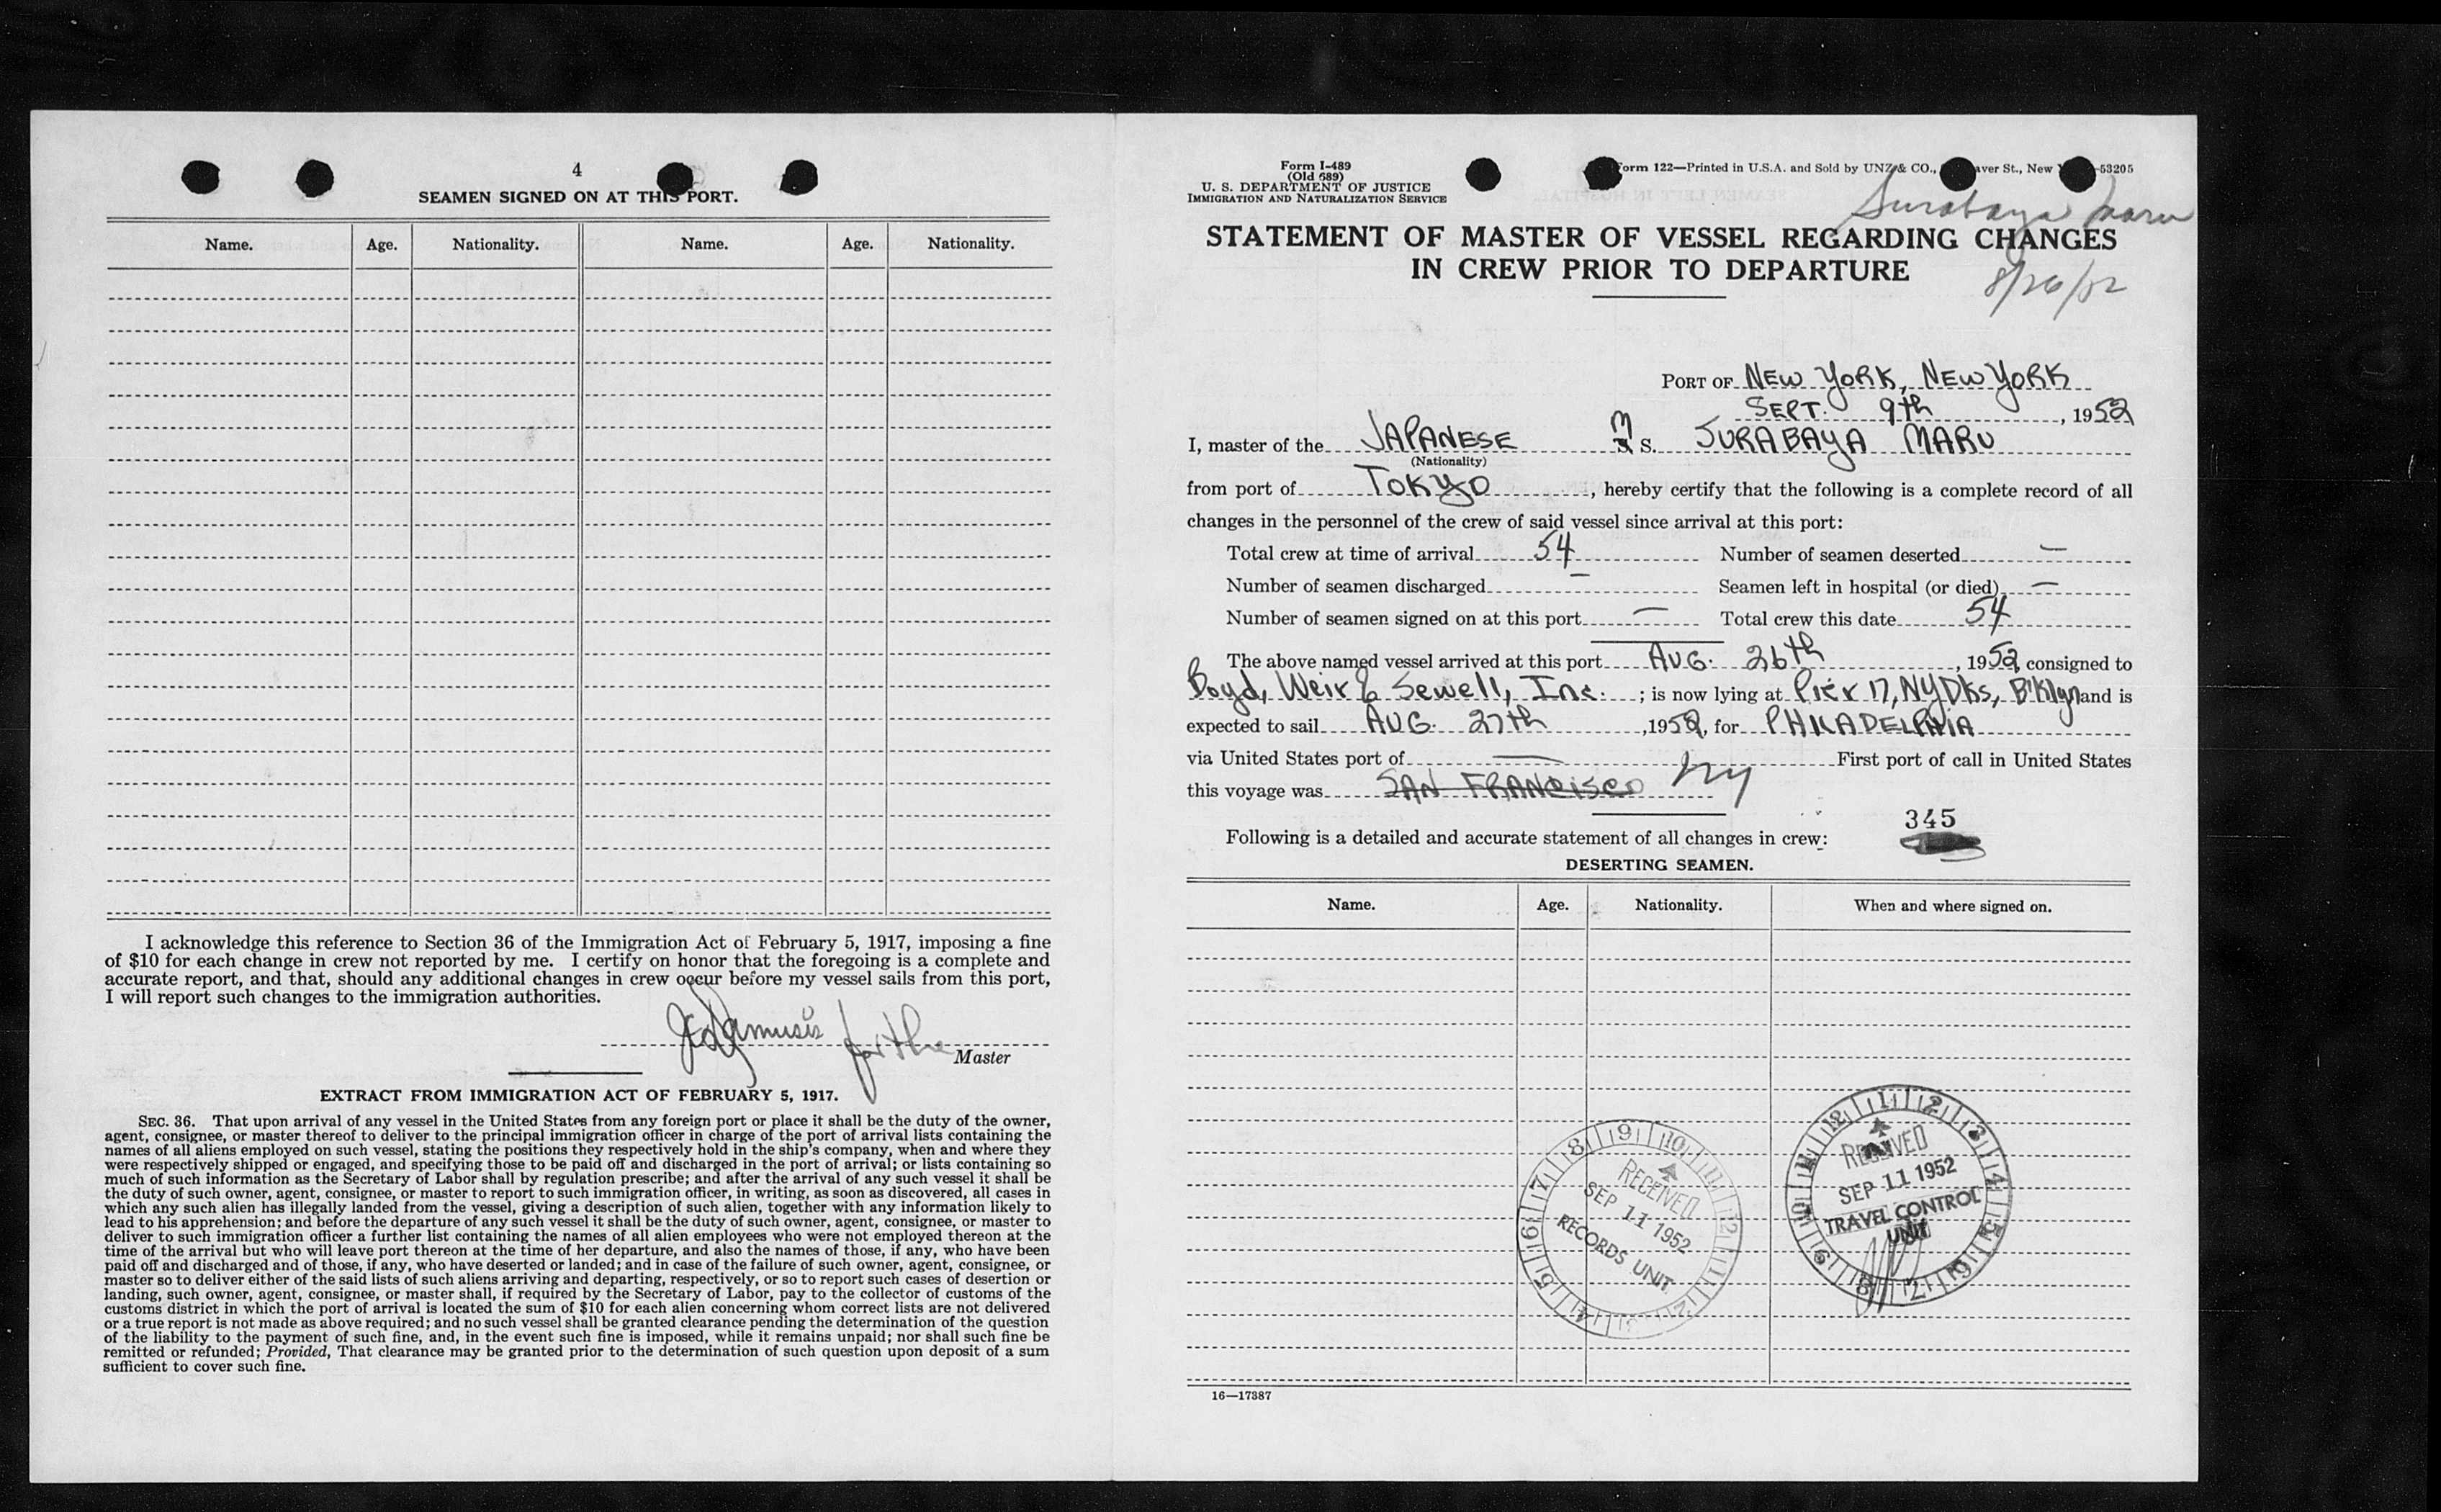 4
SEAMEN SIGNED ON AT THIS PORT.
Name. Age. Nationality. Name. Age. Nationality.
I acknowledge this reference to Section 36 of the Immigration Act of February 5, 1917, imposing a fine
of $10 for each change in crew not reported by me. I certify on honor that the foregoing is a complete and
accurate report, and that, should any additional changes in crew occur before my vessel sails from this port,
I will report such changes to the immigration authorities.
for the Master
EXTRACT FROM IMMIGRATION ACT OF FEBRUARY 5, 1917.
SEC. 36. That upon arrival of any vessel in the United States from any foreign port or place it shall be the duty of the owner,
agent, consignee, or master thereof to deliver to the principal immigration officer in charge of the port of arrival lists containing the
names of all aliens employed on such vessel, stating the positions they respectively hold in the ship's company, when and where they
were respectively shipped or engaged, and specifying those to be paid off and discharged in the port of arrival; or lists containing so
much of such information as the Secretary of Labor shall by regulation prescribe; and after the arrival of any such vessel it shall be
the duty of such owner, agent, consignee, or master to report to such immigration officer, in writing, as soon as discovered, all cases in
which any such alien has illegally landed from the vessel, giving a description of such alien, together with any information likely to
lead to his apprehension; and before the departure of any such vessel it shall be the duty of such owner, agent, consignee, or master to
deliver to such immigration officer a further list containing the names of all alien employees who were not employed thereon at the
time of the arrival but who will leave port thereon at the time of her departure, and also the names of those, if any, who have been
paid off and discharged and of those, if any, who have deserted or landed; and in case of the failure of such owner, agent, consignee, or
master so to deliver either of the said lists of such aliens arriving and departing, respectively, or so to report such cases of desertion or
landing, such owner, agent, consignee, or master shall, if required by the Secretary of Labor, pay to the collector of customs of the
customs district in which the port of arrival is located the sum of $10 for each alien concerning whom correct lists are not delivered
or a true report is not made as above required; and no such vessel shall be granted clearance pending the determination of the question
of the liability to the payment of such fine, and, in the event such fine is imposed, while it remains unpaid; nor shall such fine be
remitted or refunded; Provided, That clearance may be granted prior to the determination of such question upon deposit of a sum
sufficient to cover such fine.
Form I-489
(Old 689)
U. S. DEPARTMENT OF JUSTICE
IMMIGRATION AND NATURALIZATION SERVICE
Form 122—Printed in U.S.A. and Sold by UNZ & CO., aver St., New 53205
Surabaya Maru
STATEMENT OF MASTER OF VESSEL REGARDING CHANGES
IN CREW PRIOR TO DEPARTURE
8/26/52
PORT OF NEW YORK, NEW YORK
SEPT. 9th, 1952
I, master of the JAPANESE M S. SURABAYA MARU
(Nationality)
from port of TOKYO, hereby certify that the following is a complete record of all
changes in the personnel of the crew of said vessel since arrival at this port:
Total crew at time of arrival 54 Number of seamen deserted —
Number of seamen discharged — Seamen left in hospital (or died) —
Number of seamen signed on at this port — Total crew this date 54
The above named vessel arrived at this port AUG. 26th, 1952 consigned to
Boyd, Weir & Sewell, Inc. ; is now lying at Pier 17, NY Dks, B'Klyn and is
expected to sail AUG. 27th, 1952, for PHILADELPHIA
via United States port of — First port of call in United States
this voyage was SAN FRANCISCO NY
345
Following is a detailed and accurate statement of all changes in crew:
DESERTING SEAMEN.
Name. Age. Nationality. When and where signed on.
RECEIVED
SEP 11 1952
RECORDS UNIT
RECEIVED
SEP 11 1952
TRAVEL CONTROL
UNIT
16—17387